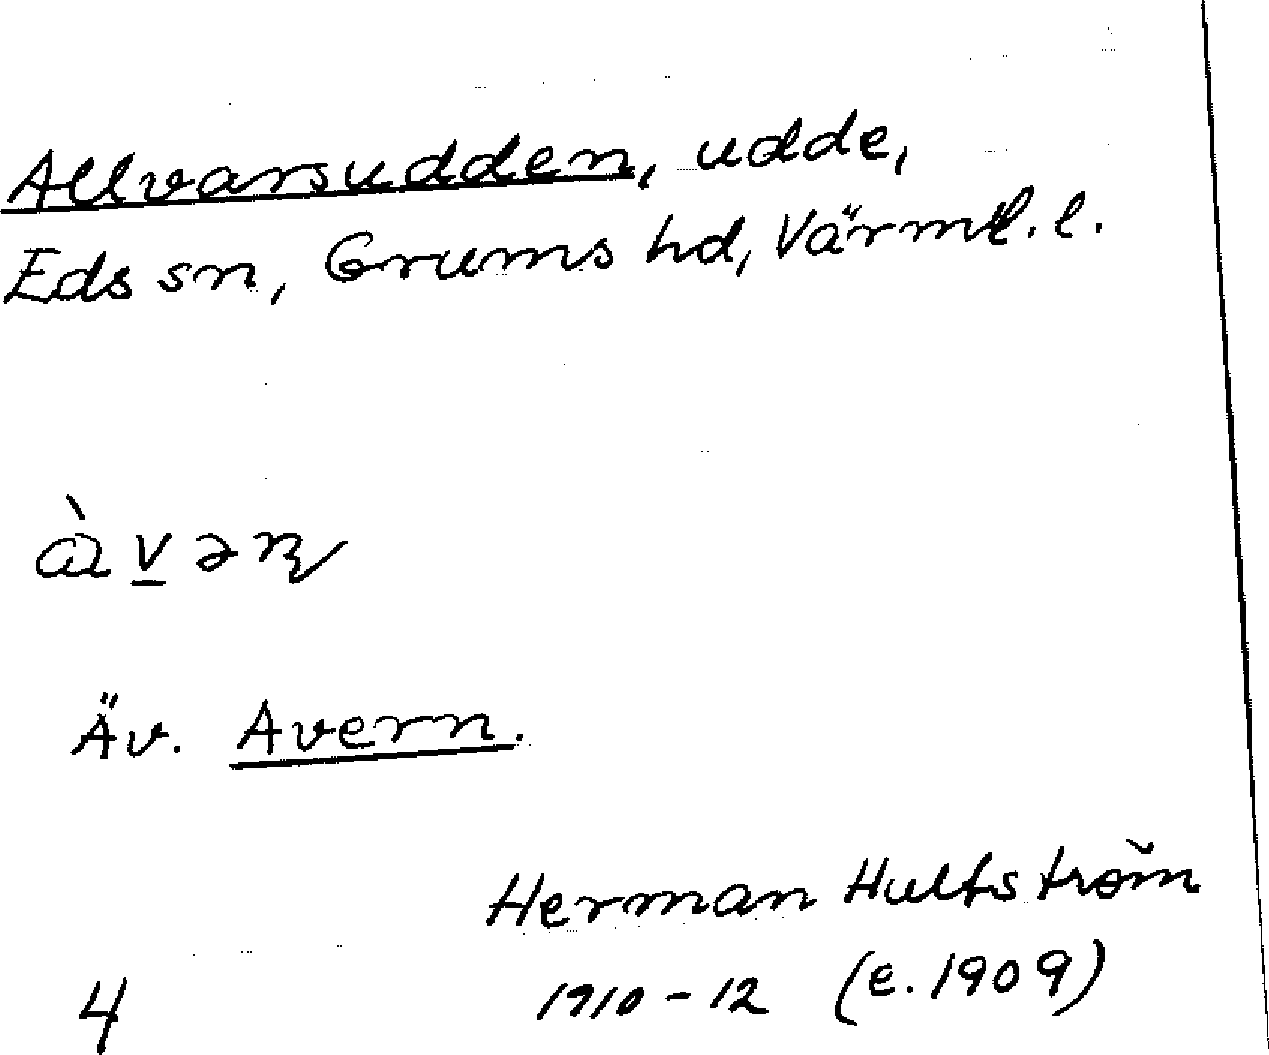 Allvarsudden, udde,
Eds sn, Grums hd, Värml. l.
àv̲əɳ
Äv. Avern.
Herman Hultström
1910-12 (e. 1909)
4